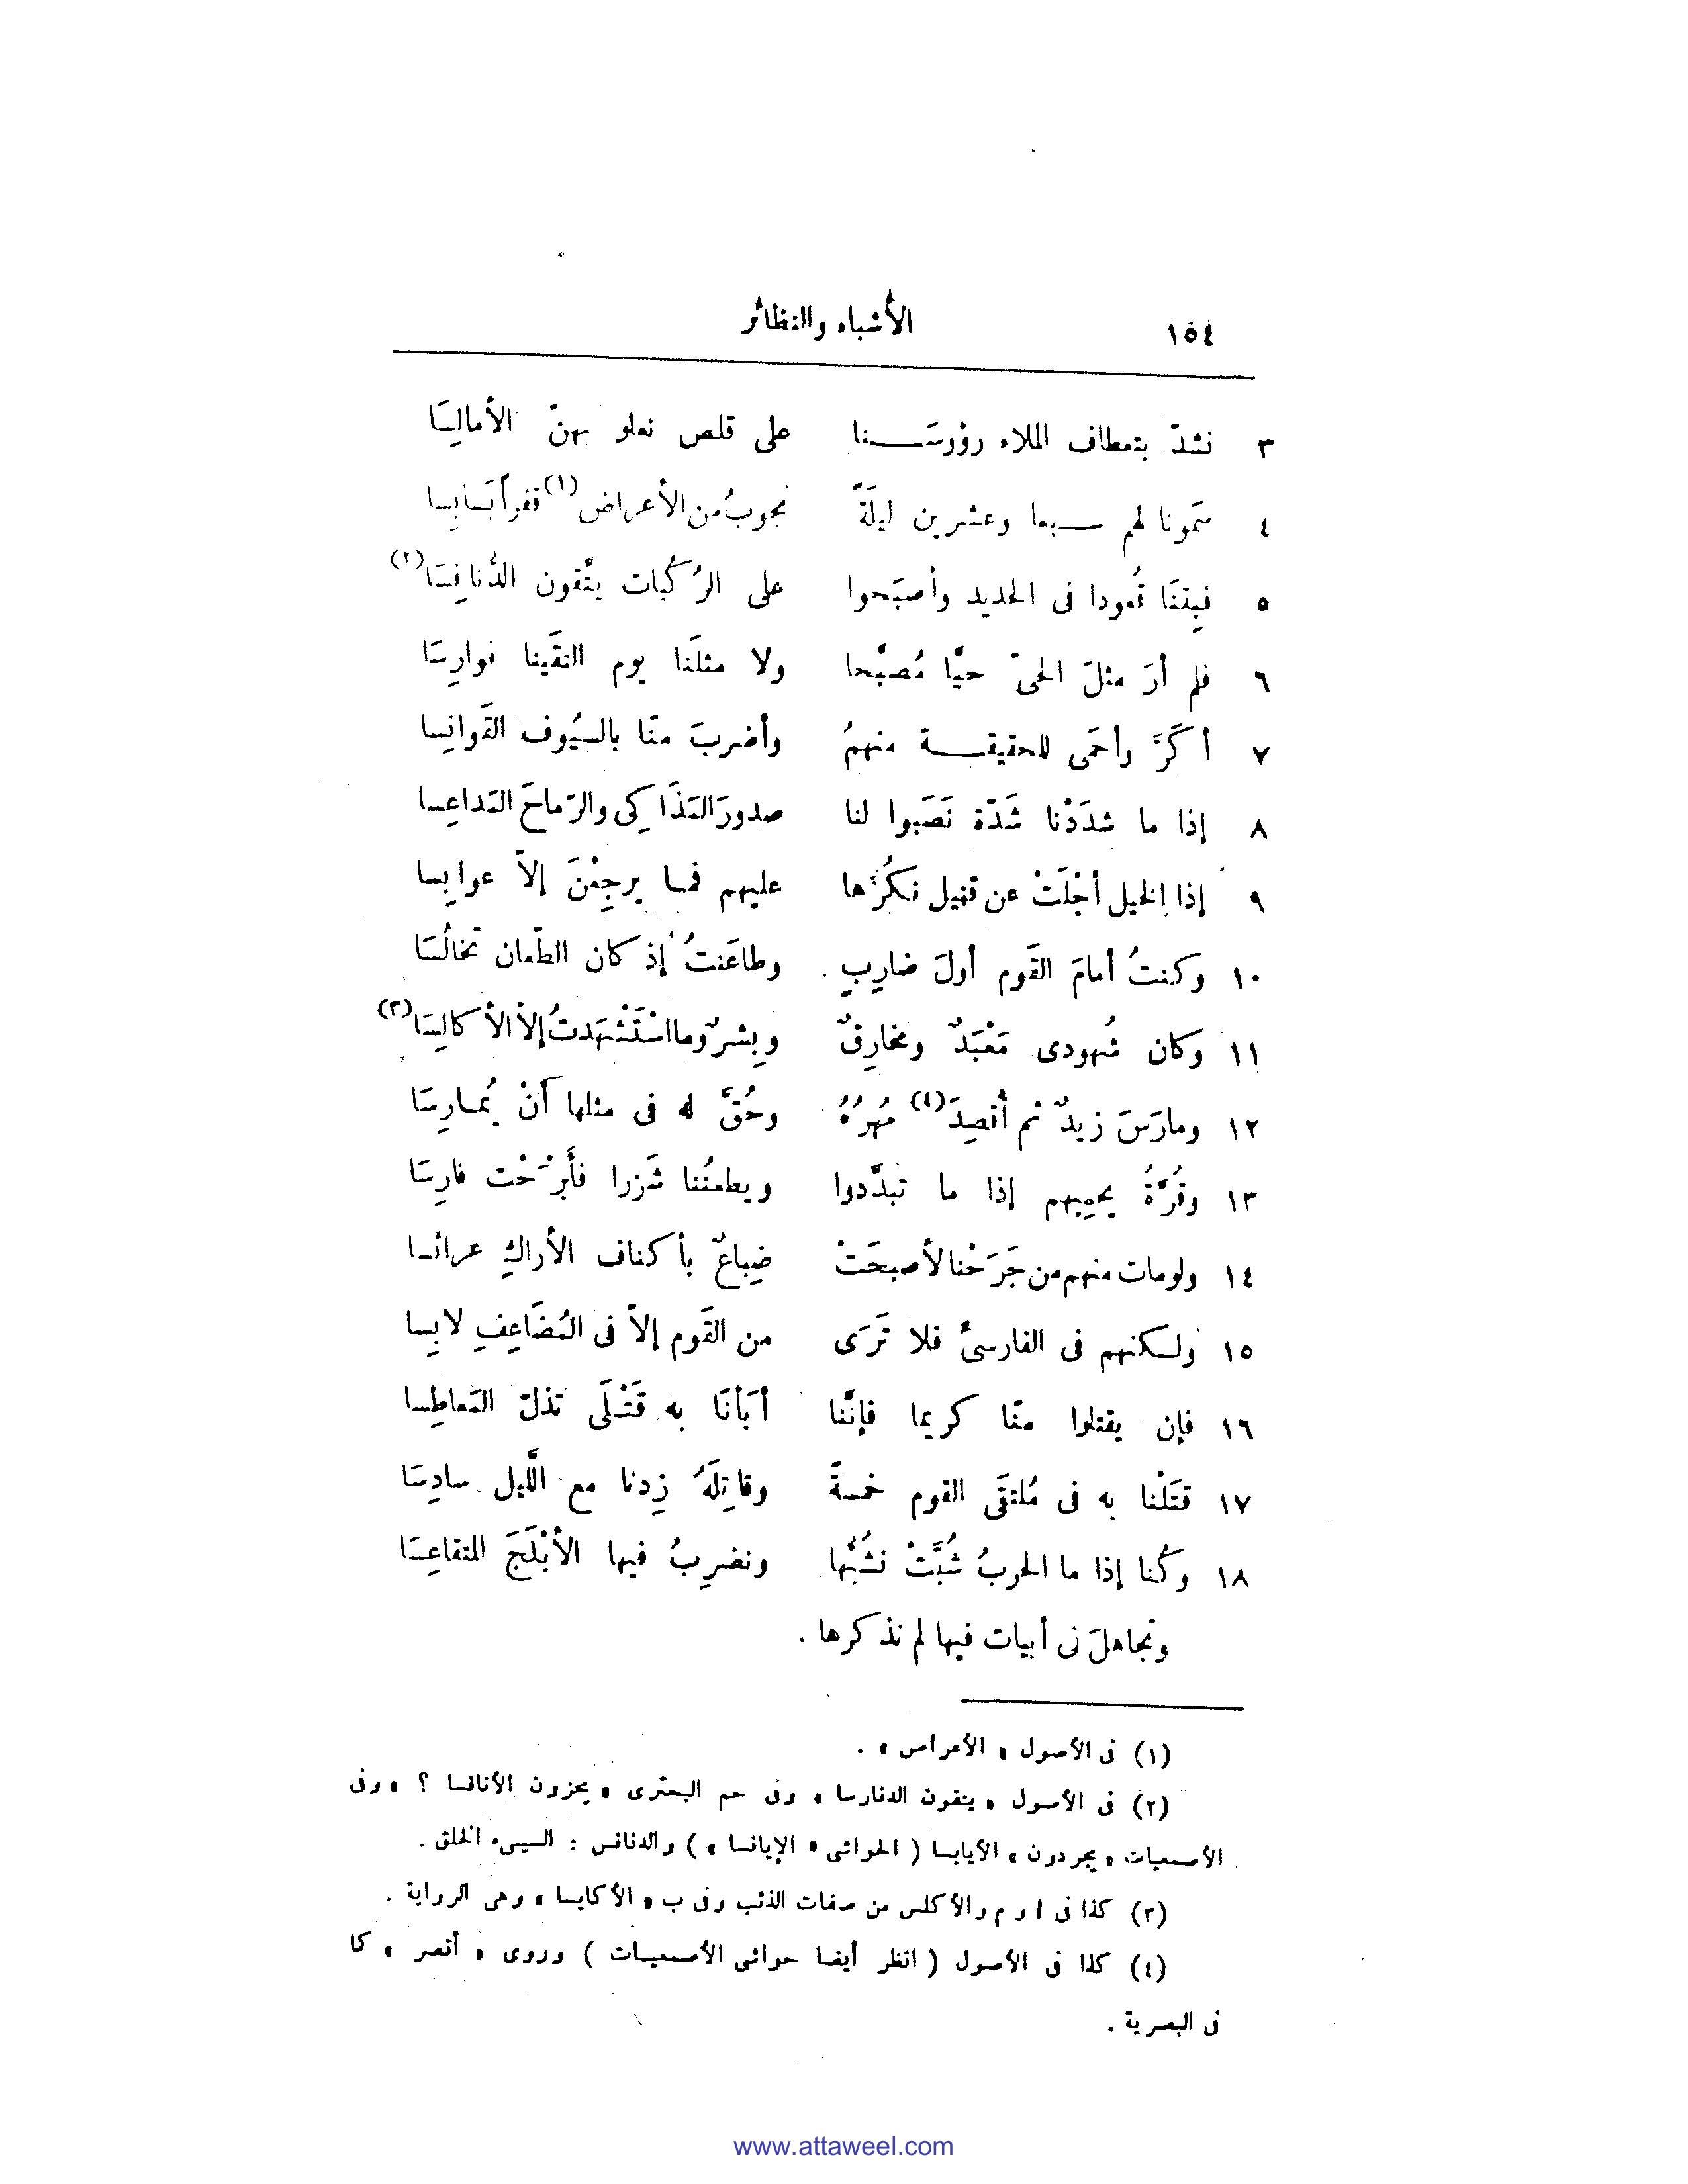 ١٥٤ الأشباه والنظائر
٣ نشدّ بتعطاف الملاء رؤوسَنا على قلص نعلو بهنّ الأمالِسَا
٤ سَمونا لهم سبعا وعشرين ليلَةً نجوبُ من الأعراض(١) قفراً بَسابِسا
٥ فبِتنَا قُعودا فى الحديد وأصبَحوا على الرُكُبات يتَّقون الدُّنافِسَا(٢)
٦ فلم أرَ مثلَ الحىّ حيًّا مُصبَّحا ولا مثلَنا يوم التقَينا فوارِسَا
٧ أكَرَّ وأحمَى للحقيقة منهمُ وأضربَ منّا بالسيُوف القَوانِسا
٨ إذا ما شدَدْنا شَدّة نَصَبوا لنا صدورَ المَذَاكِى والرّماحَ المَداعِسا
٩ إذا الخيل أجْلَتْ عن قتيل نكُرُّها عليهم فما يرجِعْنَ إلاّ عوابِسا
١٠ وكنتُ أمامَ القَوم أولَ ضارِبٍ وطاعَنتُ إذ كان الطّعان تخالُسَا
١١ وكان شُهودى مَعْبَدٌ ومخارِقٌ وبِشرٌ وما اسْتَشْهَدتُ إلاّ الأكالِسَا(٣)
١٢ ومارَسَ زيدٌ ثم أُقصِدَ(٤) مُهرُهُ وحُقَّ له فى مثلها أنْ يُمارِسَا
١٣ وقُرَّةُ يحمِيهم إذا ما تبدَّدوا ويطعنُنا شَزرا فأَبْرَحْت فارِسَا
١٤ ولومات منهم من جَرَحْنا لأصبحَتْ ضِباعٌ بأكناف الأراكِ عرائسا
١٥ ولكنهم فى الفارسىِّ فلا تَرَى من القَوم إلاّ فى المُضَاعِفِ لابِسا
١٦ فإن يقتلوا منّا كريما فإنَّنا أبَأنَا به قَتْلَى تذلّ المَعاطِسا
١٧ قتَلْنا به فى مُلتقَى القوم خمسةً وقاتِلَهُ زِدنا مع اللَّيل سادِسَا
١٨ وكُنا إذا ما الحربُ شُبَّتْ نشُبُّها ونضرِبُ فيها الأبْلَجَ المتقاعِسَا
وتجاهلَ فى أبيات فيها لم نذكرها .
(١) فى الأصول « الأعراص » .
(٢) فى الأصول « يتقون الدفارسا » وفى حم البحترى « يحزون الأنافسا ؟ » وفى
الأصمعيات « يجردون » الأيابسا ( الحواشى « الإيانسا » ) والدنافس : السيىء الخلق .
(٣) كذا فى ا و م والأكلس من صفات الذئب وفى ب « الأكايسا » وهى الرواية .
(٤) كذا فى الأصول ( انظر أيضا حواشى الأصمعيات ) وروى « أقصر » كما
فى البصرية .
www.attaweel.com